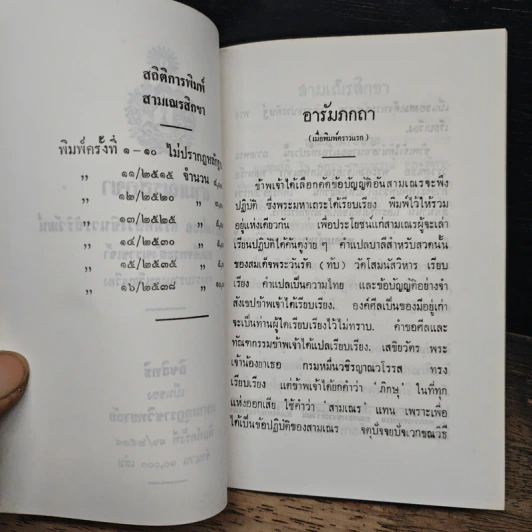 สถิติการพิมพ์
สามเณรสิกขา
พิมพ์ครั้งที่ ๑-๑๐ ไม่ปรากฏ
" ๑๑/๒๕๑๕ จำนวน
" ๑๒/๒๕๒๐ "
" ๑๓/๒๕๒๕ "
" ๑๔/๒๕๓๐ "
" ๑๕/๒๕๓๕ "
" ๑๖/๒๕๓๘ "
อารัมภกถา
(เมื่อพิมพ์คราวแรก)
ข้าพเจ้าได้เลือกคัดข้อบัญญัติอันสามเณรจะพึง
ปฏิบัติ ซึ่งพระมหาเถระได้เรียบเรียง พิมพ์ไว้ให้รวม
อยู่แห่งเดียวกัน เพื่อประโยชน์แก่สามเณรผู้จะเล่า
เรียนปฏิบัติได้ค้นดูง่าย ๆ คำแปลบาลีสำหรับสวดนั้น
ของสมเด็จพระวันรัต (ทับ) วัดโสมนัสวิหาร เรียบ
เรียง คำแปลเป็นความไทย และข้อบัญญัติอย่างจำ
สังเขปข้าพเจ้าได้เรียบเรียง. องค์ศีลเป็นของมีอยู่เก่า
จะเป็นท่านผู้ใดเรียบเรียงไว้ไม่ทราบ. คำขอศีลและ
ทัณฑกรรมข้าพเจ้าได้แปลเรียบเรียง. เสขิยวัตร พระ
เจ้าน้องยาเธอ กรมหมื่นวชิรญาณวโรรส ทรง
เรียบเรียง แต่ข้าพเจ้าได้ยกคำว่า 'ภิกษุ' ในที่ทุก
แห่งออกเสีย ใช้คำว่า 'สามเณร' แทน เพราะเพื่อ
ได้เป็นข้อปฏิบัติของสามเณร จตุปัจจยปัจเวกขณวิธี